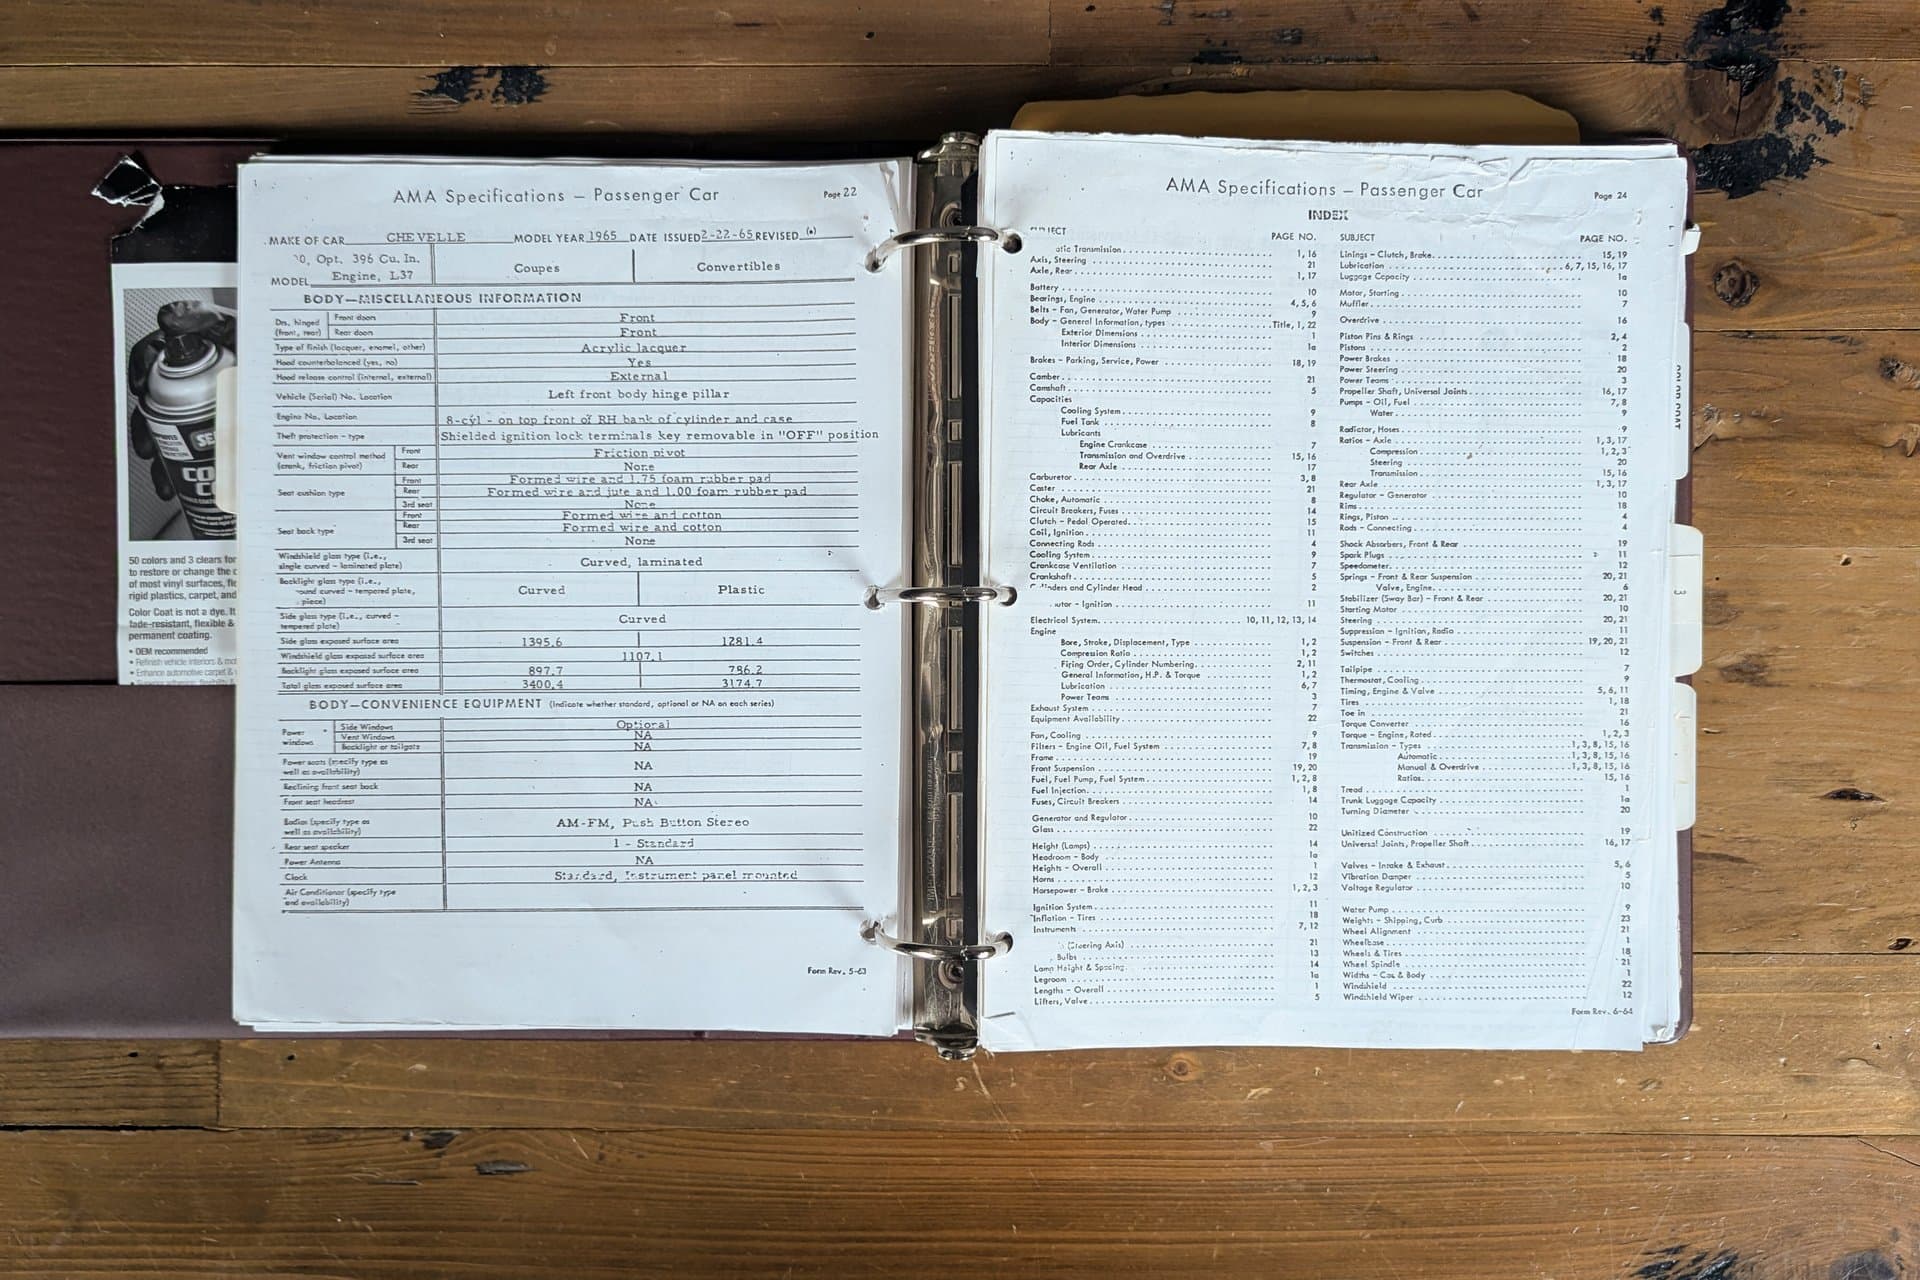 AMA Specifications — Passenger Car Page 22
MAKE OF CAR CHEVELLE MODEL YEAR 1965 DATE ISSUED 2-22-65 REVISED (•)
Opt. 396 Cu. In.
MODEL Engine, L37 Coupes Convertibles
BODY—MISCELLANEOUS INFORMATION
Drs. hinged (front, rear) Front doors Front
Rear doors Front
Type of finish (lacquer, enamel, other) Acrylic lacquer
Hood counterbalanced (yes, no) Yes
Hood release control (internal, external) External
Vehicle (Serial) No. Location Left front body hinge pillar
Engine No. Location 8-cyl - on top front of RH bank of cylinder and case
Theft protection - type Shielded ignition lock terminals key removable in "OFF" position
Vent window control method (crank, friction pivot) Front Friction pivot
Rear None
Seat cushion type Front Formed wire and 1.75 foam rubber pad
Rear Formed wire and jute and 1.00 foam rubber pad
3rd seat None
Seat back type Front Formed wire and cotton
Rear Formed wire and cotton
3rd seat None
Windshield glass type (i.e., single curved - laminated plate) Curved, laminated
Backlight glass type (i.e., curved - tempered plate, piece) Curved Plastic
Side glass type (i.e., curved - tempered plate) Curved
Side glass exposed surface area 1395.6 1281.4
Windshield glass exposed surface area 1107.1
Backlight glass exposed surface area 897.7 786.2
Total glass exposed surface area 3400.4 3174.7
BODY—CONVENIENCE EQUIPMENT (Indicate whether standard, optional or NA on each series)
Power windows Side Windows Optional
Vent Windows NA
Backlight or tailgate NA
Power seats (specify type as well as availability) NA
Reclining front seat back NA
Front seat headrest NA
Radios (specify type as well as availability) AM-FM, Push Button Stereo
Rear seat speaker 1 - Standard
Power Antenna NA
Clock Standard, Instrument panel mounted
Air Conditioner (specify type and availability)
Form Rev. 5-63
50 colors and 3 clears for
to restore or change the
of most vinyl surfaces,
rigid plastics, carpet, and
Color Coat is not a dye. It
fade-resistant, flexible &
permanent coating.
• OEM recommended
• Refinish vehicle interiors &
• Enhance automotive carpet &
AMA Specifications — Passenger Car Page 24
INDEX
PAGE NO.
Transmission 1, 16
Axis, Steering 21
Axle, Rear 1, 17
Battery 10
Bearings, Engine 4, 5, 6
Belts - Fan, Generator, Water Pump 9
Body - General Information, types Title, 1, 22
Exterior Dimensions 1
Interior Dimensions 1a
Brakes - Parking, Service, Power 18, 19
Camber 21
Camshaft 5
Capacities
Cooling System 9
Fuel Tank 8
Lubricants
Engine Crankcase 7
Transmission and Overdrive 15, 16
Rear Axle 17
Carburetor 3, 8
Caster 21
Choke, Automatic 8
Circuit Breakers, Fuses 14
Clutch - Pedal Operated 15
Coil, Ignition 11
Connecting Rods 4
Cooling System 9
Crankcase Ventilation 7
Crankshaft 5
and Cylinder Head 2
- Ignition 11
Electrical System 10, 11, 12, 13, 14
Engine
Bore, Stroke, Displacement, Type 1, 2
Compression Ratio 1, 2
Firing Order, Cylinder Numbering 2, 11
General Information, H.P. & Torque 1, 2
Lubrication 6, 7
Power Teams 3
Exhaust System 7
Equipment Availability 22
Fan, Cooling 9
Filters - Engine Oil, Fuel System 7, 8
Frame 19
Front Suspension 19, 20
Fuel, Fuel Pump, Fuel System 1, 2, 8
Fuel Injection 1, 8
Fuses, Circuit Breakers 14
Generator and Regulator 10
Glass 22
Height (Lamps) 14
Headroom - Body 1a
Heights - Overall 1
Horns 12
Horsepower - Brake 1, 2, 3
Ignition System 11
Inflation - Tires 18
Instruments 7, 12
(Steering Axis) 21
Bulbs 13
Lamp Height & Spacing 14
Legroom 1a
Lengths - Overall 1
Lifters, Valve 5
SUBJECT PAGE NO.
Linings - Clutch, Brake 15, 19
Lubrication 6, 7, 15, 16, 17
Luggage Capacity 1a
Motor, Starting 10
Muffler 7
Overdrive 16
Piston Pins & Rings 2, 4
Pistons 2
Power Brakes 18
Power Steering 20
Power Teams 3
Propeller Shaft, Universal Joints 16, 17
Pumps - Oil, Fuel 7, 8
Water 9
Radiator, Hoses 9
Ratios - Axle 1, 3, 17
Compression 1, 2, 3
Steering 20
Transmission 15, 16
Rear Axle 1, 3, 17
Regulator - Generator 10
Rims 18
Rings, Piston 4
Rods - Connecting 4
Shock Absorbers, Front & Rear 19
Spark Plugs 11
Speedometer 12
Springs - Front & Rear Suspension 20, 21
Valve, Engine 6
Stabilizer (Sway Bar) - Front & Rear 20, 21
Starting Motor 10
Steering 20, 21
Suppression - Ignition, Radio 11
Suspension - Front & Rear 19, 20, 21
Switches 12
Tailpipe 7
Thermostat, Cooling 9
Timing, Engine & Valve 5, 6, 11
Tires 1, 18
Toe in 21
Torque Converter 16
Torque - Engine, Rated 1, 2, 3
Transmission - Types 1, 3, 8, 15, 16
Automatic 1, 3, 8, 15, 16
Manual & Overdrive 1, 3, 8, 15, 16
Ratios 15, 16
Tread 1
Trunk Luggage Capacity 1a
Turning Diameter 20
Unitized Construction 19
Universal Joints, Propeller Shaft 16, 17
Valves - Intake & Exhaust 5, 6
Vibration Damper 5
Voltage Regulator 10
Water Pump 9
Weights - Shipping, Curb 23
Wheel Alignment 21
Wheelbase 1
Wheels & Tires 18
Wheel Spindle 21
Widths - Car & Body 1
Windshield 22
Windshield Wiper 12
Form Rev. 6-64
3